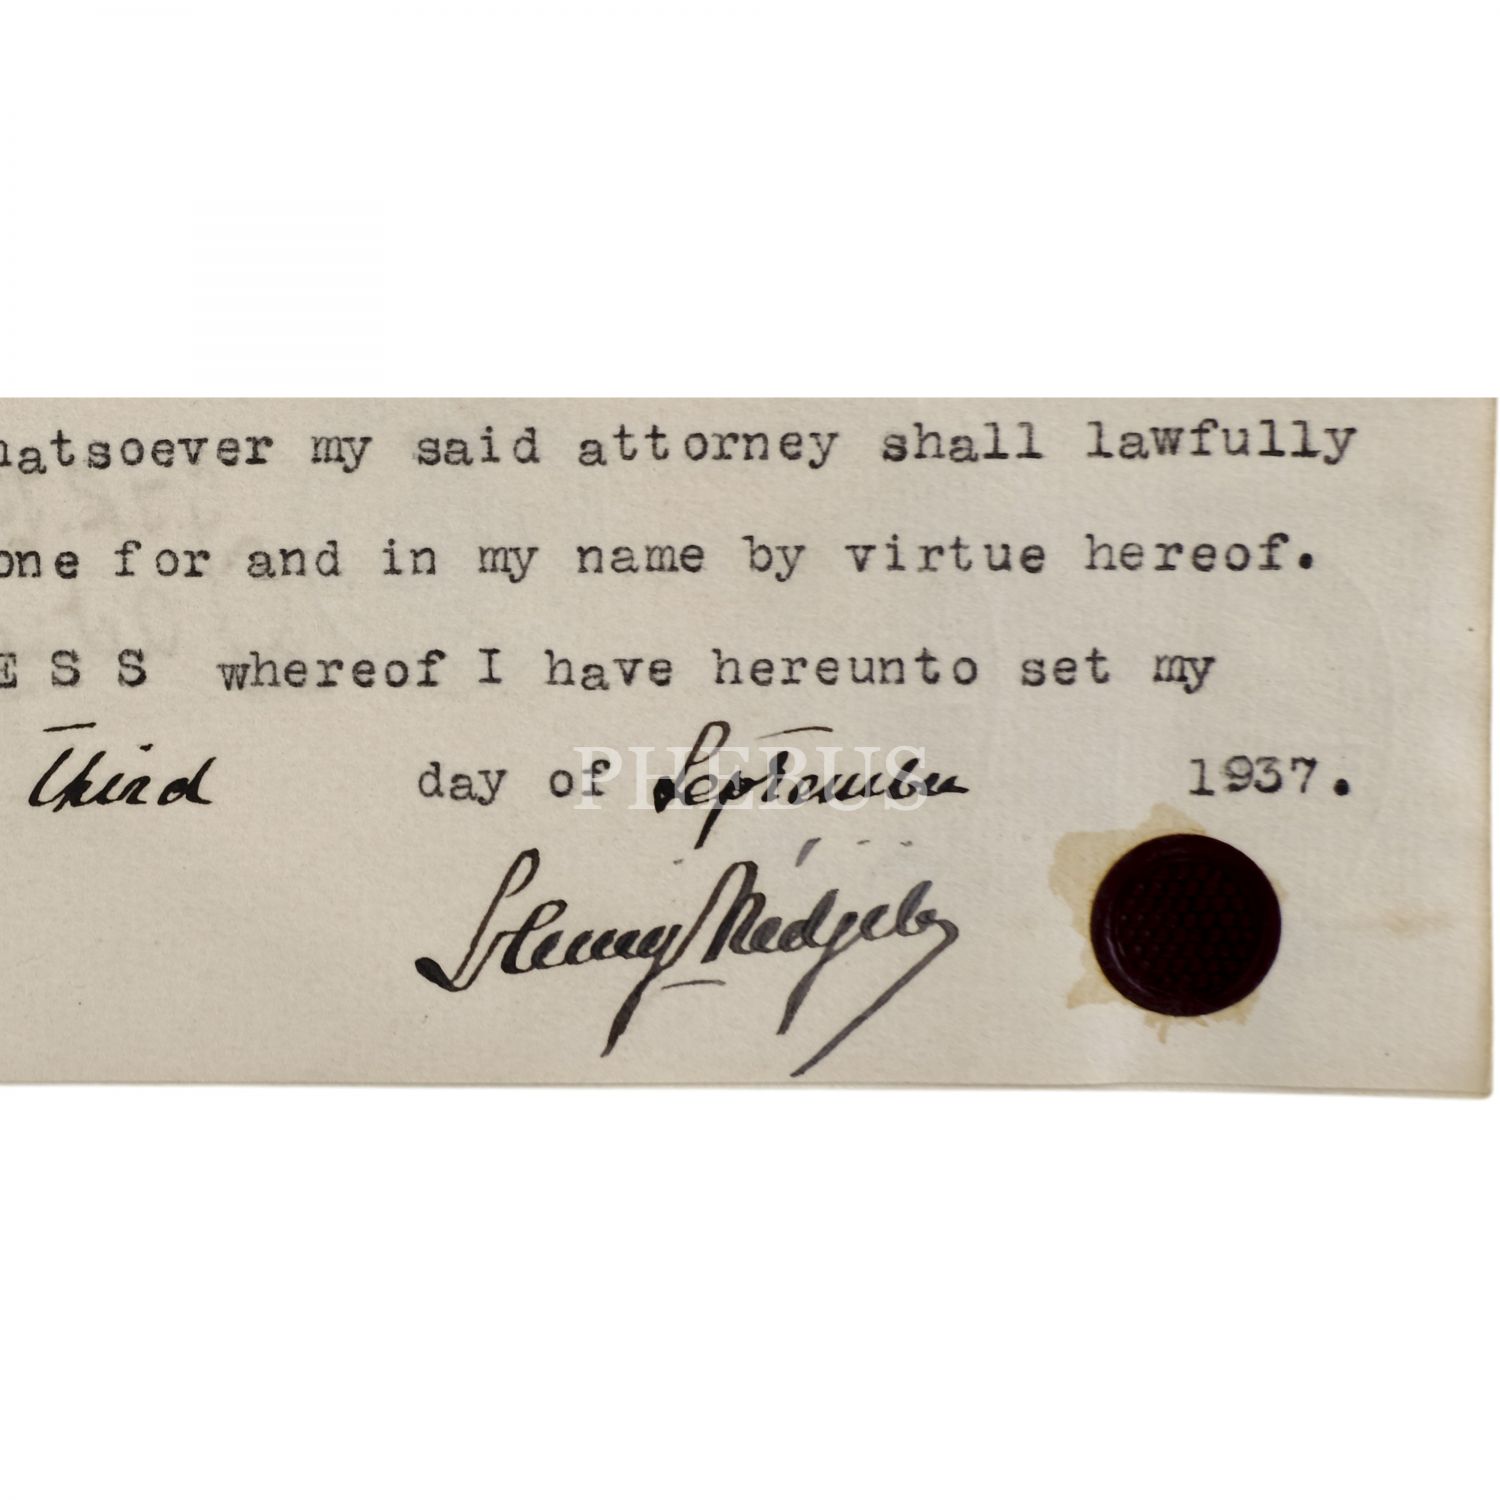 hatsoever my said attorney shall lawfully
one for and in my name by virtue hereof.
E S S whereof I have hereunto set my
Third day of September 1937.
PHEBUS
Henry